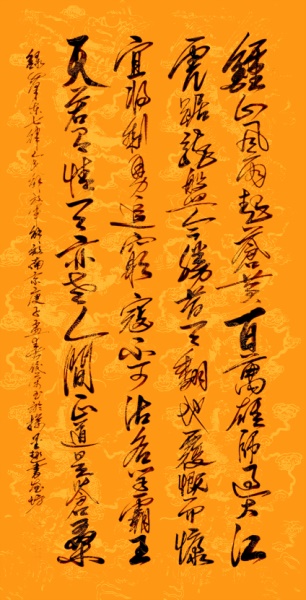 鍾山風雨起蒼黃百萬雄師過大江
虎踞龍盤今勝昔天翻地覆慨而慷
宜將剩勇追窮寇不可沽名學霸王
天若有情天亦老人間正道是蒼桑
錄七律人民解放軍解放南京庚子書